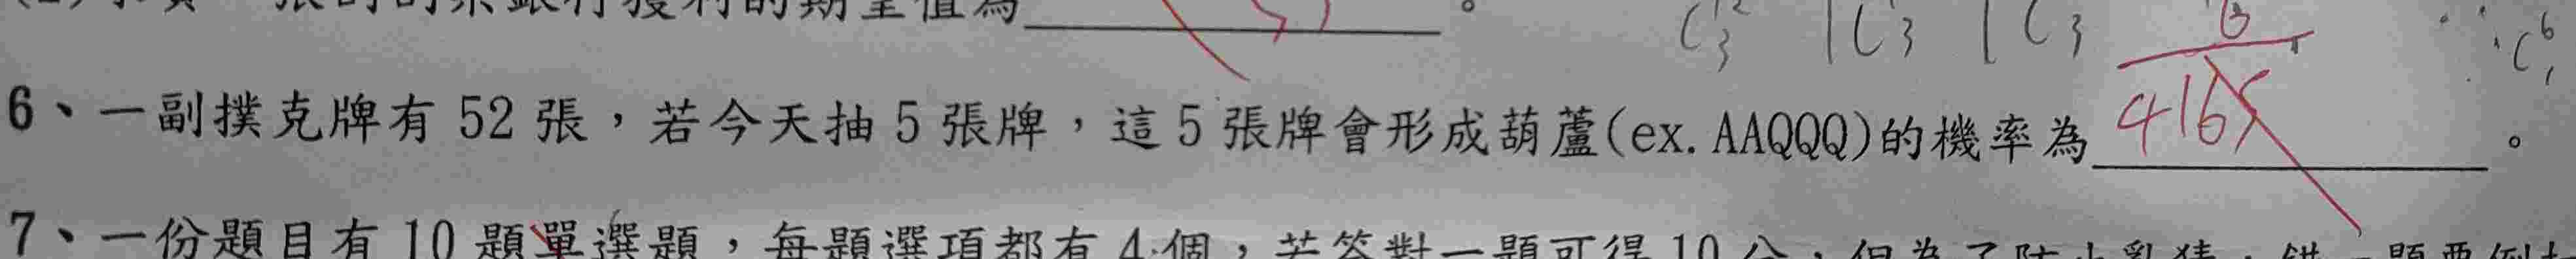 獲利的期望值為 。
6、一副撲克牌有 52 張，若今天抽 5 張牌，這 5 張牌會形成葫蘆(ex. AAQQQ)的機率為 6/4165 。
7、一份題目有 10 題單選題，每題選項都有 4 個，若答對一題可得 10 分，但為了防止亂猜，錯一題要倒扣